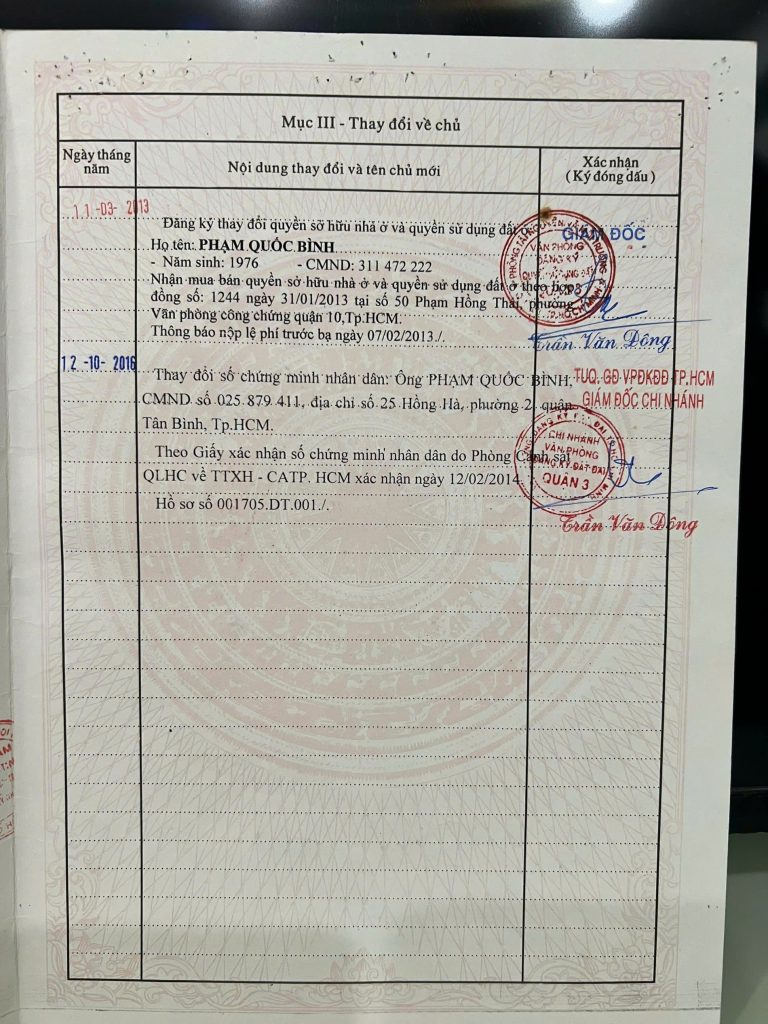 Mục III - Thay đổi về chủ
Ngày tháng năm
Nội dung thay đổi và tên chủ mới
Xác nhận
( Ký đóng dấu )
11 -03- 2013
Đăng ký thay đổi quyền sở hữu nhà ở và quyền sử dụng đất ở
Họ tên: PHẠM QUỐC BÌNH
- Năm sinh: 1976 - CMND: 311 472 222
Nhận mua bán quyền sở hữu nhà ở và quyền sử dụng đất ở theo hợp
đồng số: 1244 ngày 31/01/2013 tại số 50 Phạm Hồng Thái, phường
Văn phòng công chứng quận 10,Tp.HCM.
Thông báo nộp lệ phí trước bạ ngày 07/02/2013./.
GIÁM ĐỐC
VĂN PHÒNG
ĐĂNG KÝ
Trần Văn Dông
12 -10- 2016
Thay đổi số chứng minh nhân dân: Ông PHẠM QUỐC BÌNH,
CMND số 025 879 411, địa chỉ số 25 Hồng Hà, phường 2, quận
Tân Bình, Tp.HCM.
Theo Giấy xác nhận số chứng minh nhân dân do Phòng Cảnh sát
QLHC về TTXH - CATP. HCM xác nhận ngày 12/02/2014
Hồ sơ số 001705.DT.001./.
TUQ. GĐ VPĐKĐĐ TP.HCM
GIÁM ĐỐC CHI NHÁNH
CHI NHÁNH
VĂN PHÒNG
ĐĂNG KÝ ĐẤT ĐAI
QUẬN 3
Trần Văn Dông